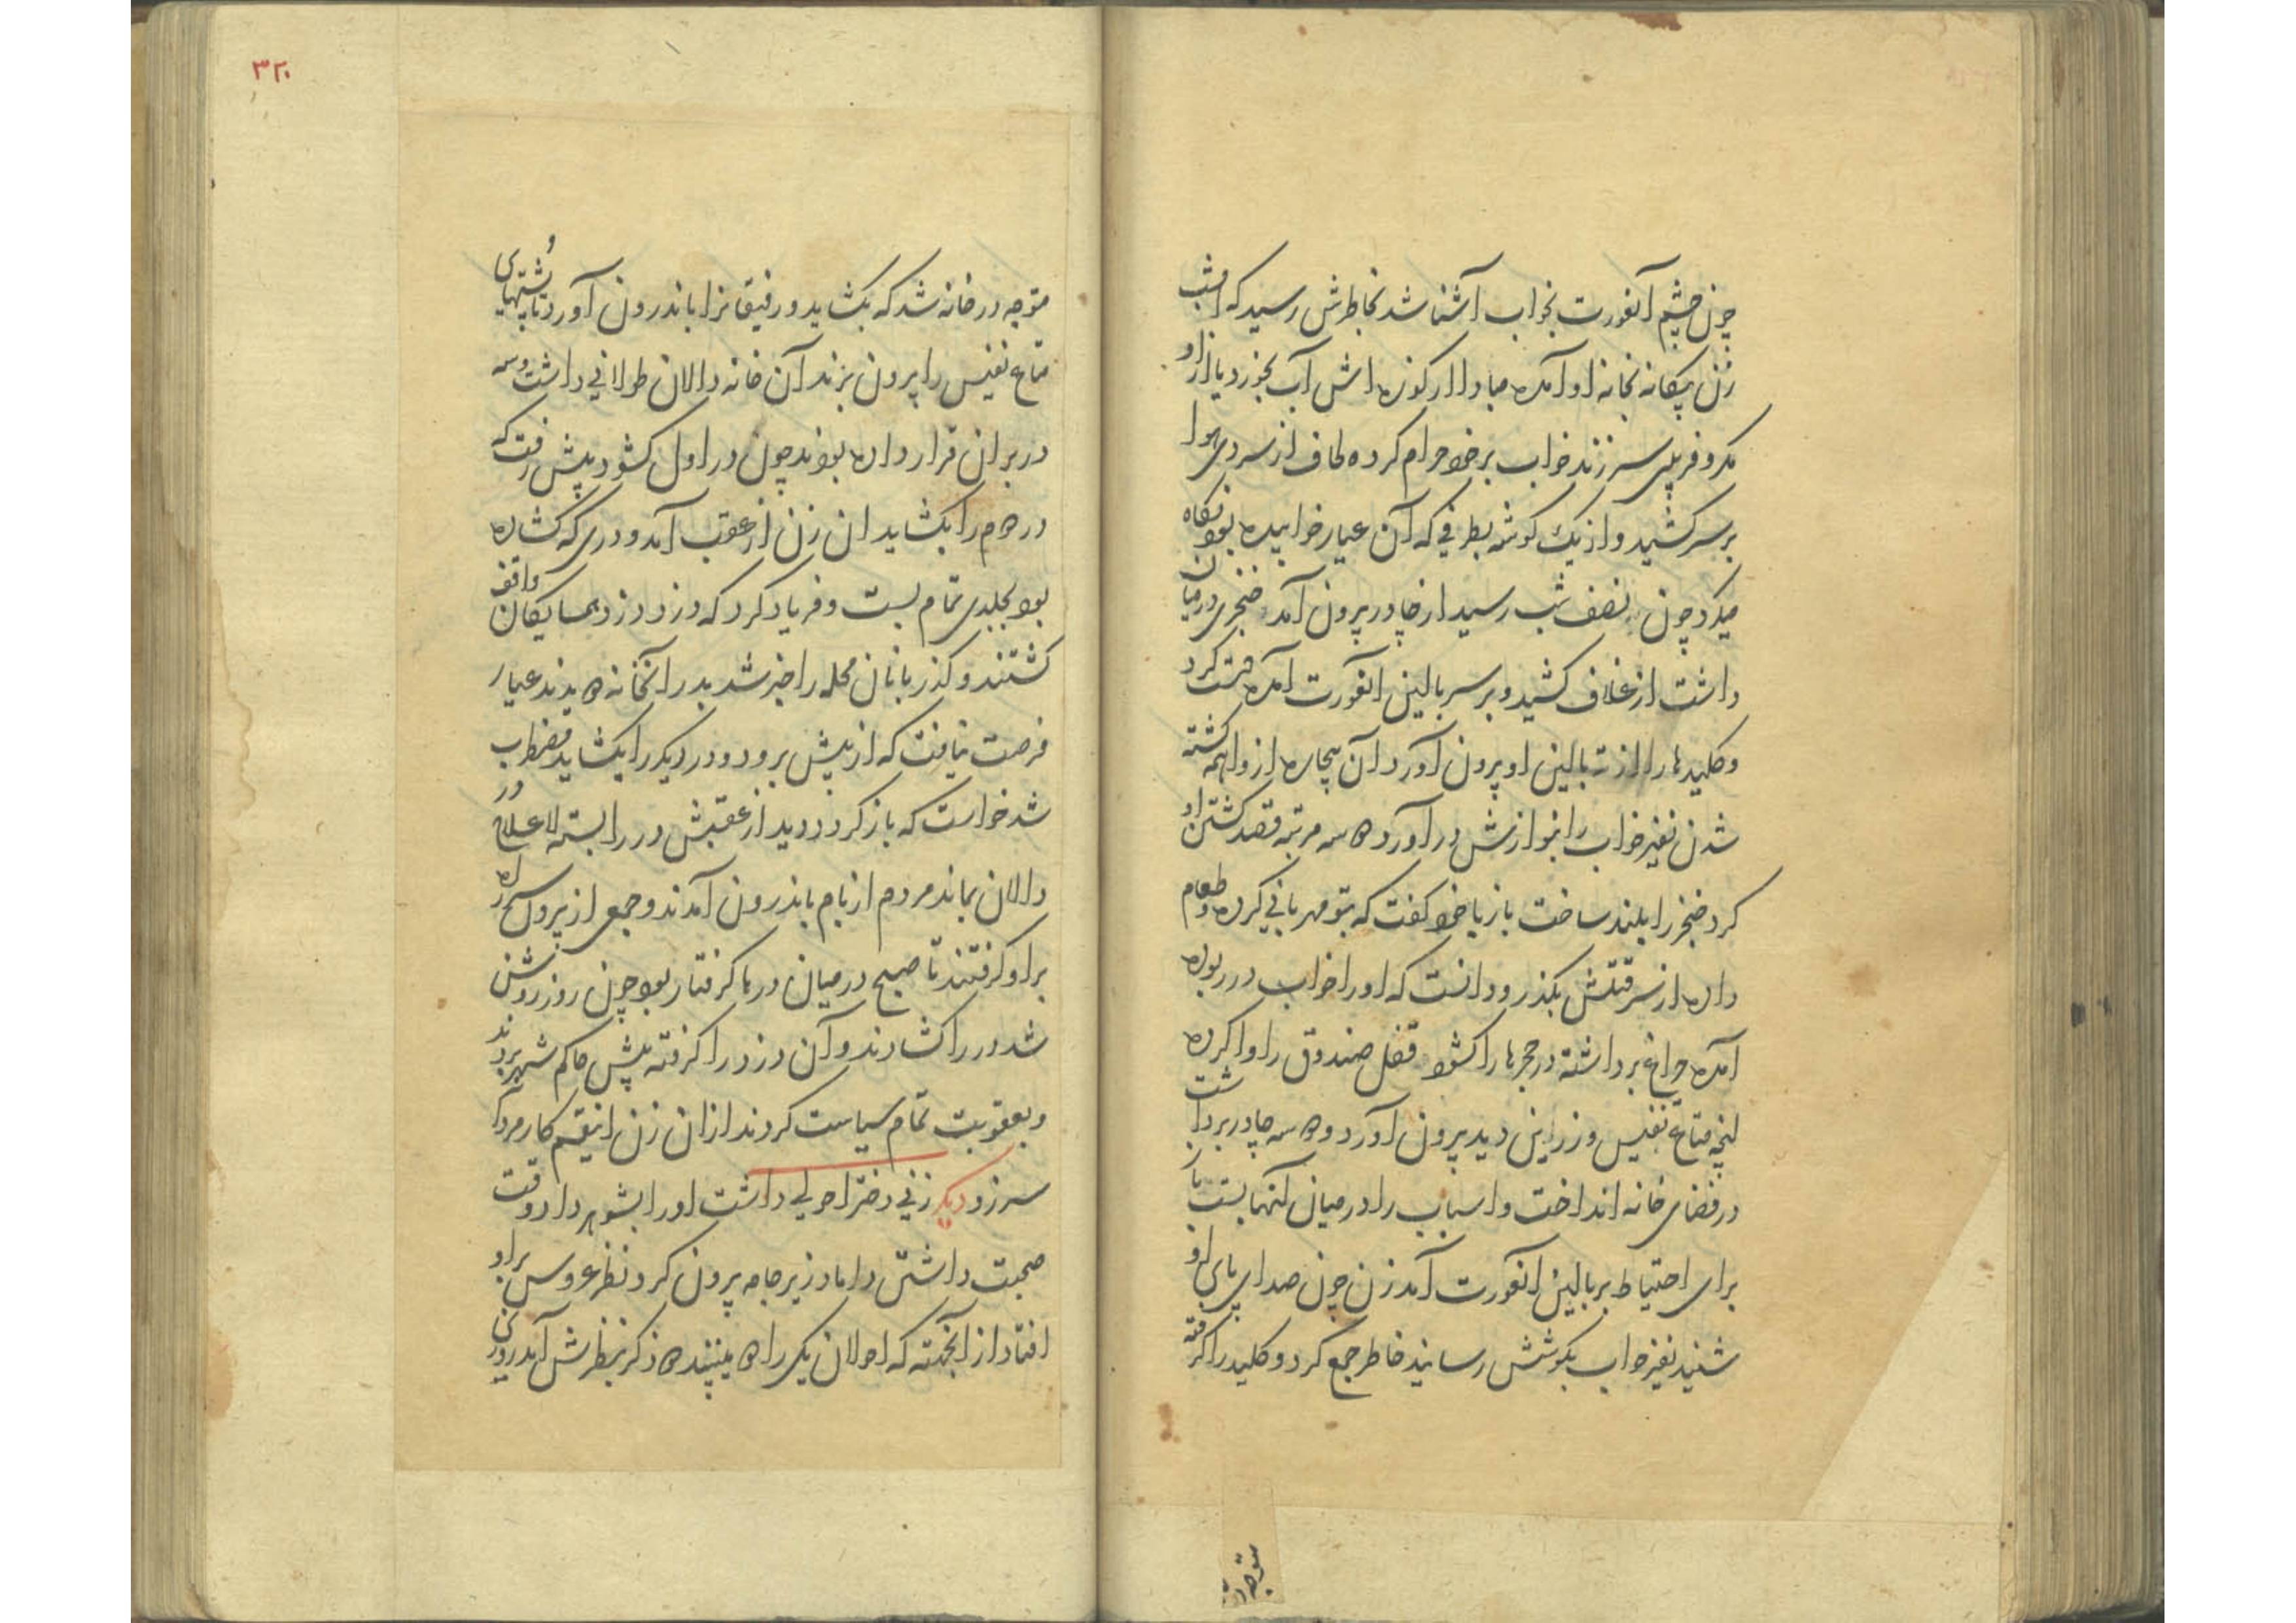 چون چشم آنعورت بخواب آشنا شد بخاطرش رسید که امشب
زن بیکانه بخانه او آمده مبادا از کوزه اش آب بخورد یا از او
مکر و فریبی سر زند خواب بر خود حرام کرده لحاف از سردی هوا
بر سر کشید و از یک کوشه بطرفی که آن عیار خوابیده بود نکاه
میکرد چون نصف شب رسید از چادر بیرون آمد خنجری در میان
داشت از غلاف کشید و بر سر بالین آنعورت آمده کرد
و کلیدها را از ته بالین او بیرون آورد آن بیچاره از واهمه کشته
شدن نفیر خواب را بنوازش در آورد دو سه مرتبه قصد کشتن او
کرد خنجر را بلند ساخت باز با خود کفت که بتو مهربانی کرده و طعام
داده از سر قتلش بکذر و دانست که او را خواب در ربوده
آمده چراغ برداشته در حجرها را کشود قفل صندوق را وا کرده
آنچه متاع نفیس و زرین دید بیرون آورد دو سه چادر برداشت
در فضای خانه انداخت و اسباب را در میان آنها بست باز
برای احتیاط بر بالین آنعورت آمد زن چون صدای پای او
شنید نفیر خواب بکوشش رسانید خاطر جمع کرد و کلید را کرفته
متوجه در
۳۲۰
متوجه در خانه شد که بکشاید و رفیقانرا باندرون آورد تا پشتهای
متاع نفیس را بیرون برند آن خانه دالان طولانی داشت و سه
در بر آن قرار داده بودند چون در اول کشود پیش رفت که
در دوم را بکشاید آن زن از عقب آمد و دری که کشاده
بود بجلدی تمام بست و فریاد کرد که دزد دزد همسایکان واقف
کشتند و کذربانان محله را خبر شد بدر آنخانه دویدند عیار
فرصت نیافت که از پیش برود و در دیکر را بکشاید مضطرب
شد خواست که باز کردد دید از عقبش در را بسته لاعلاج در
دالان بماند مردم از بام باندرون آمدند و جمعی از بیرون سر راه
بر او کرفتند تا صبح در میان درها کرفتار بود چون روز روشن
شد در را کشادند و آن دزد را کرفته پیش حاکم شهر بردند
و بعقوبت تمام سیاست کردند از آن زن اینقسم کار مردانه
سر زد دیکر زنی دختر احولی داشت او را بشوهر داد وقت
صحبت داشتن داماد زیر جامه بیرون کرد نظر عروس بر او
افتاد از آنجهته که احولان یکی را دو بینند دو ذکر بنظرش آمد روی